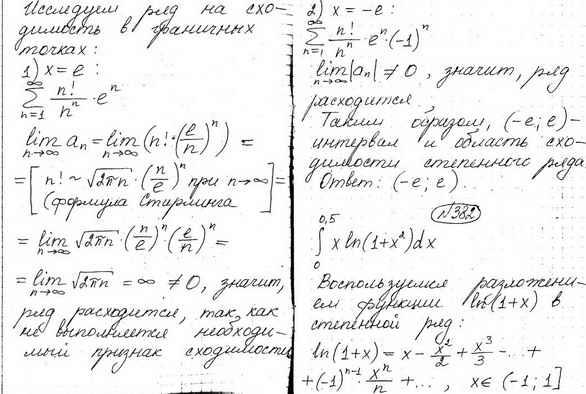 Исследуем ряд на схо-
димость в граничных
точках:
1) x = e :
∞
∑ n!/nⁿ · eⁿ
n=1
lim aₙ = lim (n! · (e/n)ⁿ) =
n→∞ n→∞
= [ n! ~ √2πn · (n/e)ⁿ при n→∞ ] =
(формула Стирлинга
= lim √2πn · (n/e)ⁿ · (e/n)ⁿ =
n→∞
= lim √2πn = ∞ ≠ 0, значит,
n→∞
ряд расходится, так, как
не выполняется необходи-
мый признак сходимости
2) x = -e :
∞
∑ n!/nⁿ · eⁿ · (-1)ⁿ
n=1
lim |aₙ| ≠ 0, значит, ряд
n→∞
расходится.
Таким образом, (-e; e) -
интервал и область схо-
димости степенного ряда
Ответ: (-e; e).
N382
0,5
∫ x ln(1+x²)dx
0
Воспользуемся разложени-
ем функции ln(1+x) в
степенной ряд:
ln(1+x) = x - x²/2 + x³/3 - ... +
+ (-1)ⁿ⁻¹ · xⁿ/n + ... , x ∈ (-1; 1]